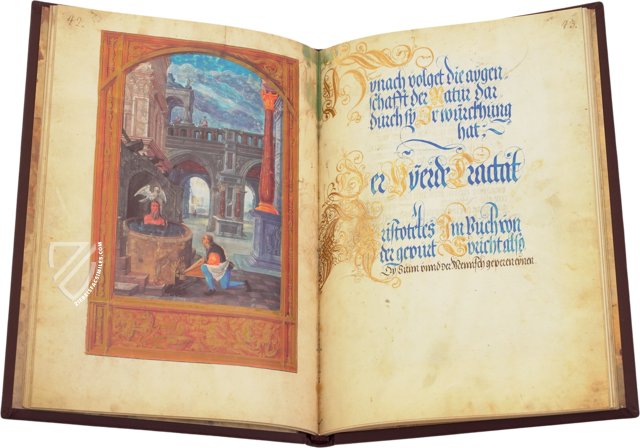 42.
ZIEREISFACSIMILES.COM
43.
Hÿnach volget die aygen
schafft der Natur dar
durch sy Ir würckhung
hat:
Der Vierde Tractat
Aristoteles Im Buch von
der geburt Spricht also
Dy Sunn vnnd der Mennsch geperen einen